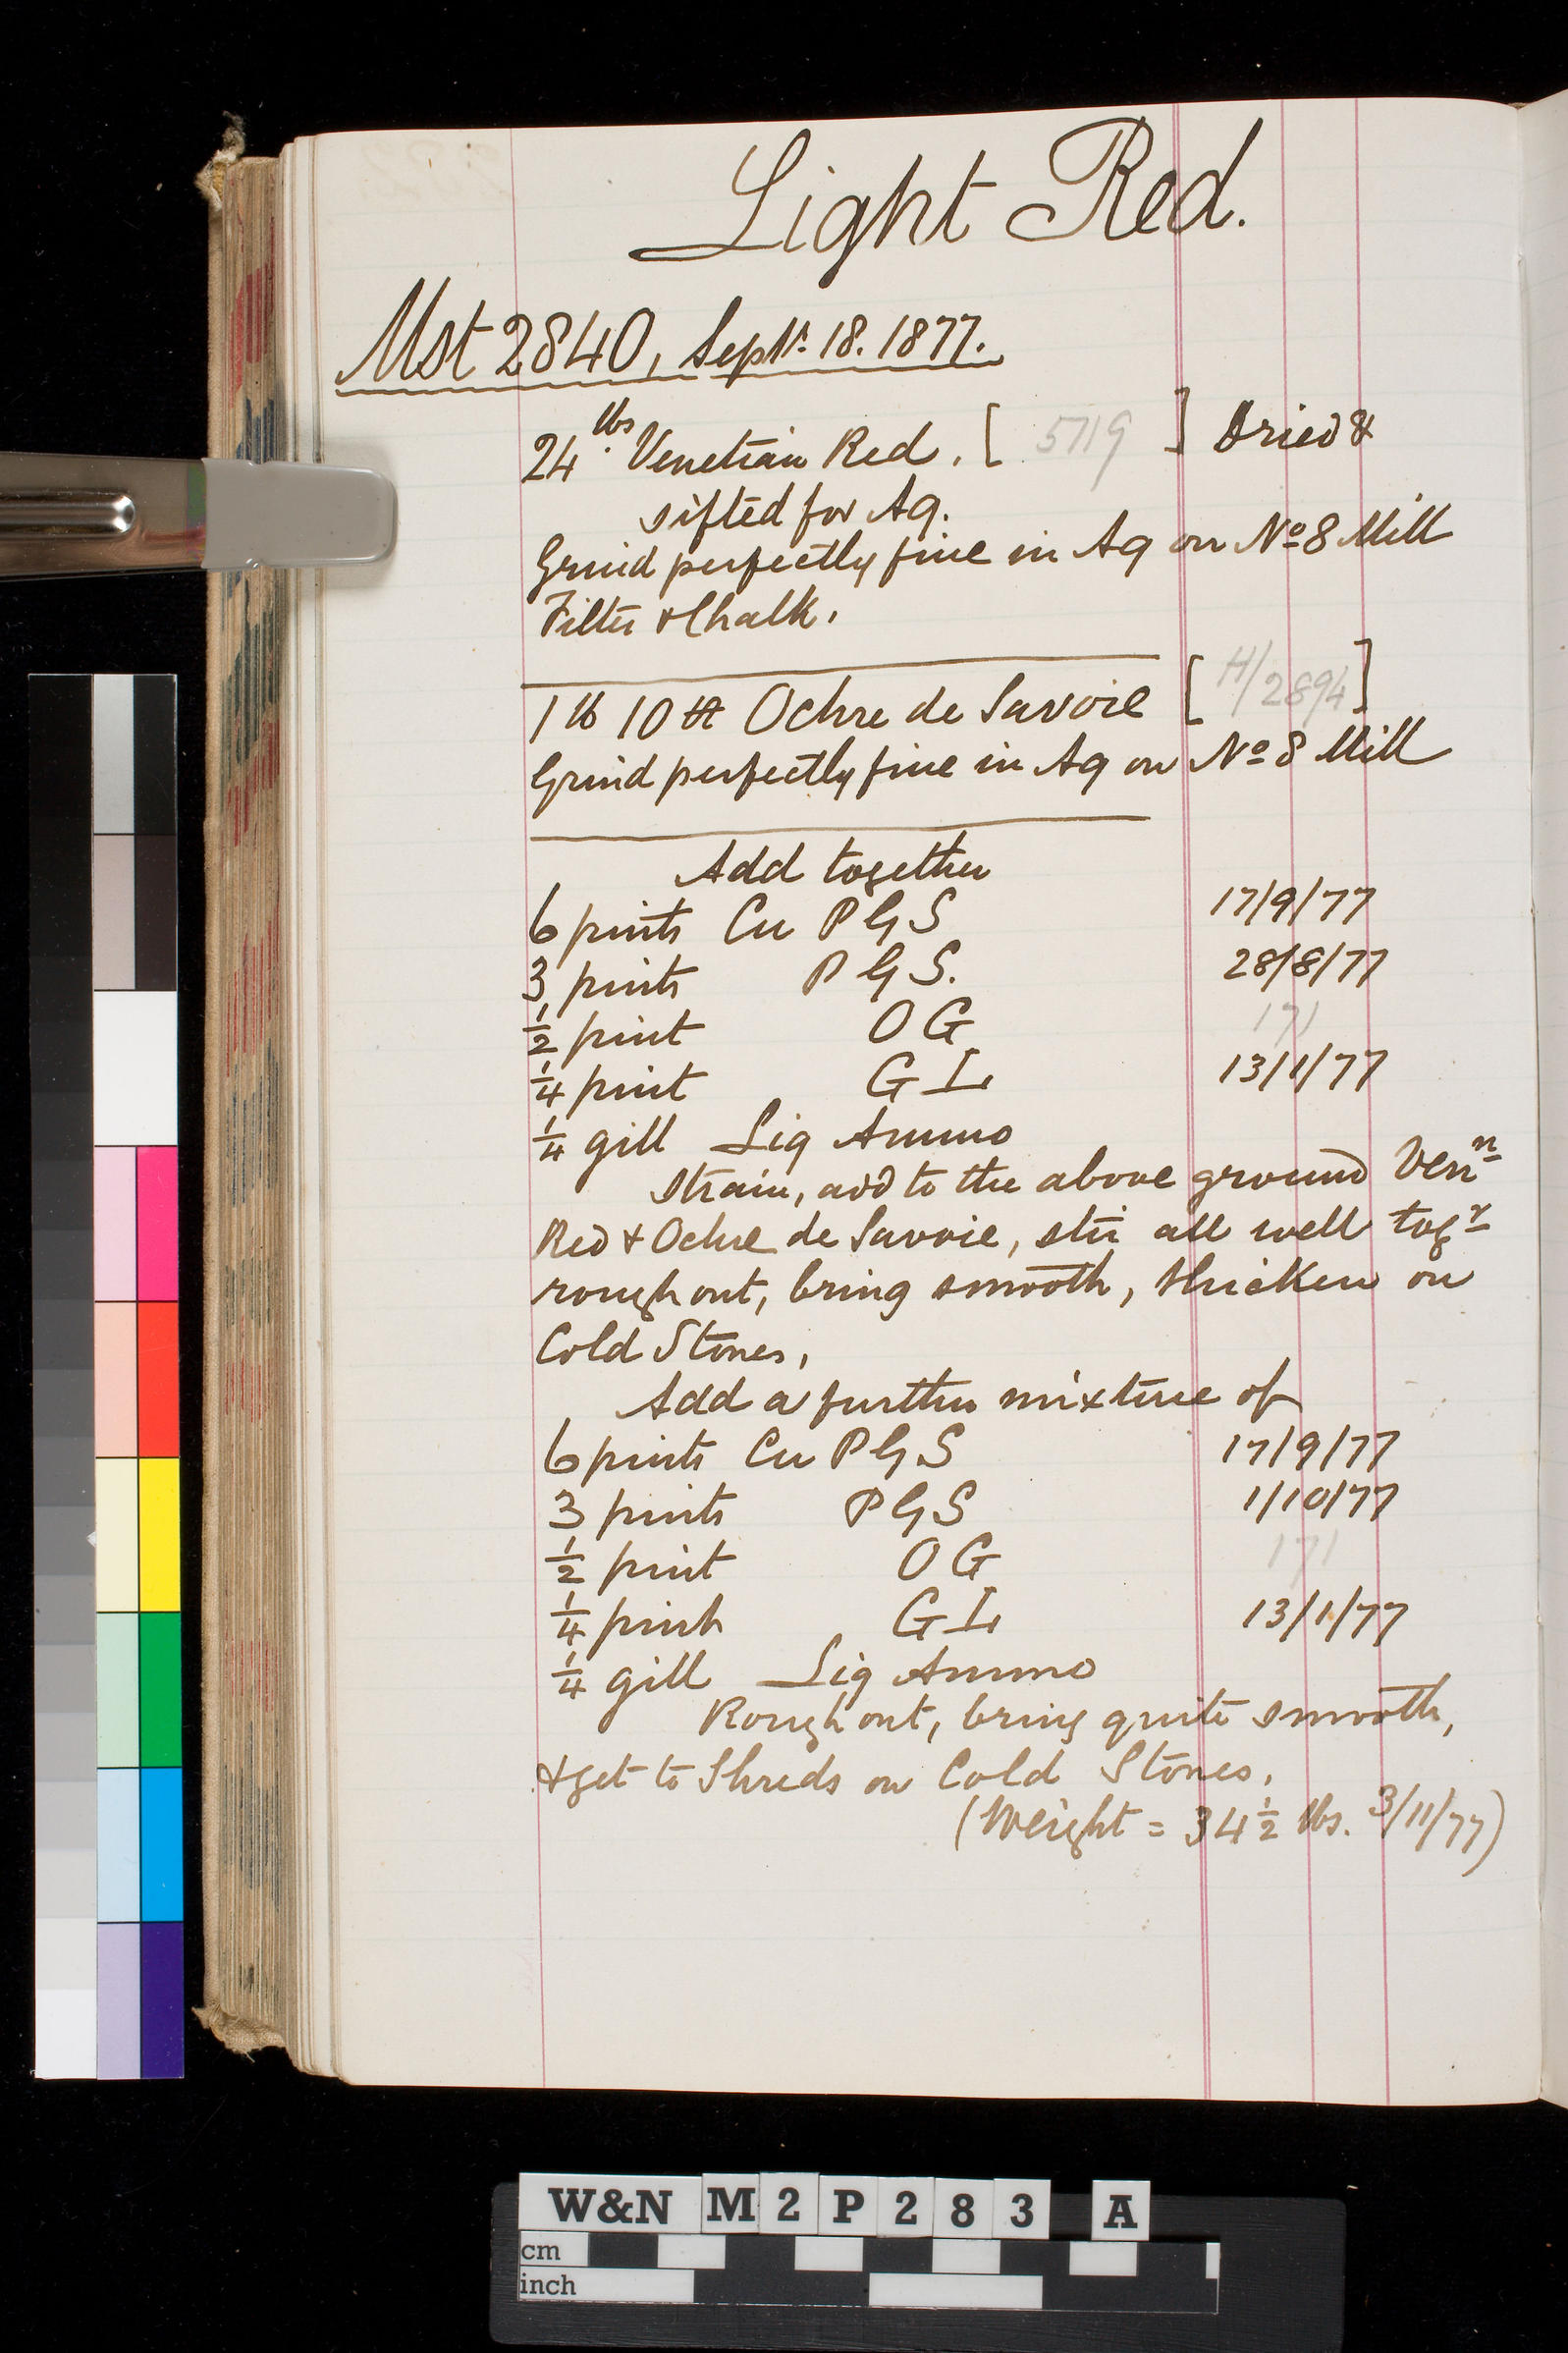 Light Red.
Mst 2840, Septr. 18. 1877.
24 lbs Venetian Red. [ 5719 ] Dried &
sifted for Aq.
Grind perfectly fine in Aq on No 8 Mill
Filter & Chalk.
1 lb 10 Ochre de Savoie [ H/2894 ]
Grind perfectly fine in Aq on No 8 Mill
Add together
6 pints Cu P G S 17/9/77
3 pints P G S. 28/8/77
½ pint O G 171
¼ pint G L 13/1/77
¼ gill Liq Ammo
Strain, add to the above ground Venn
Red & Ochre de Savoie, stir all well togr
rough out, bring smooth, thicken on
Cold Stones,
Add a further mixture of
6 pints Cu P G S 17/9/77
3 pints P G S 1/10/77
½ pint O G 171
¼ pint G L 13/1/77
¼ gill Liq Ammo
Rough out, bring quite smooth,
& get to Shreds on Cold Stones.
(Weight = 34½ lbs. 3/11/77)
W&N M2P283 A
cm
inch